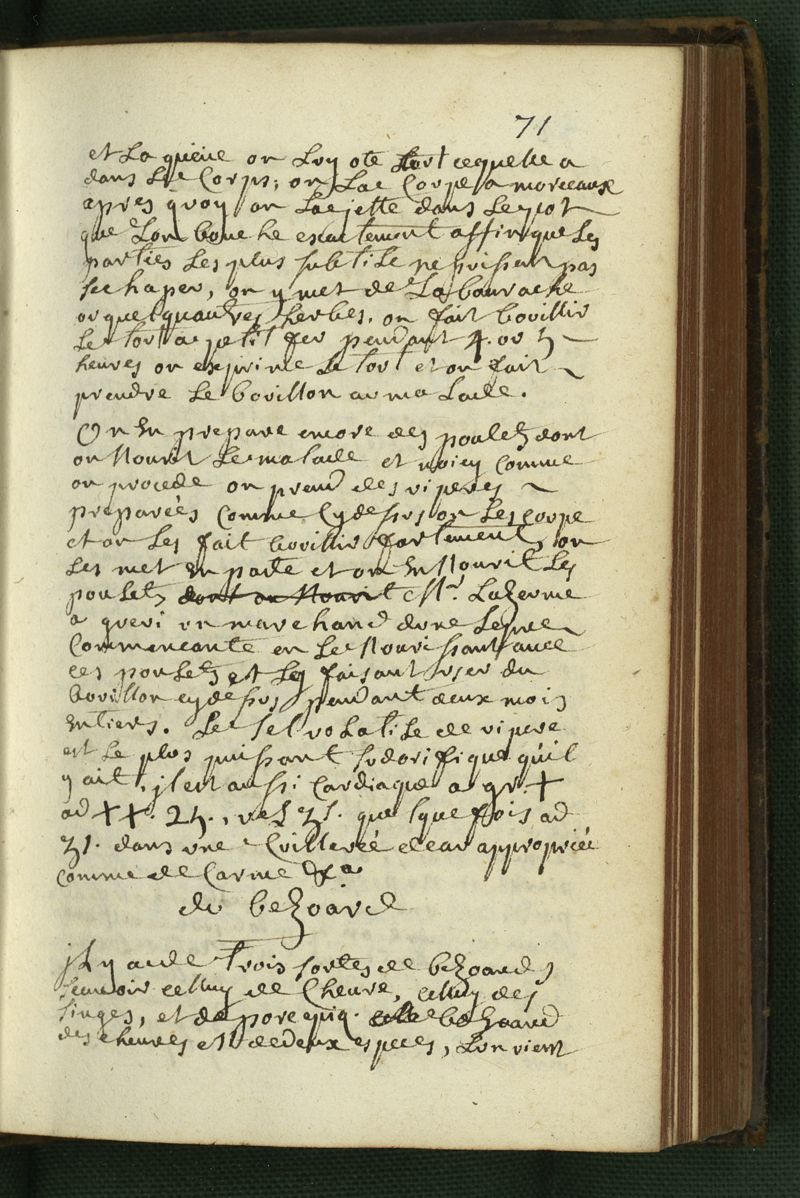 71
et La queüe on Luy ote tout cequelle a
dans Le Corps; on La Coupe a morceaux
apres quoy on La jette dans Le pot
que Lon bouche exactement affin que Les
parties Les plus subtile ne puissent pas
sechaper, on y met de La bourache
ou quelqu'autres herbes. on fait bovillir
Le tout a petit feu pendant 4. ou 5
heures on exprime Le tout et on fait
prendre Le bovillon au malade.
On En prepare encore des pouletz dont
on Nourit Le malade et voicy comme
on procede on prend des viperes
preparées comme Cydessus on Les coupe
et on Les fait bovillir fortement, on
Les met En pate et on En Nourit Les
pouletz dont on Nourit Mr. LaZerme
a gueri un marchand d'une Lepre
Commencante en Le Nourissant avec
ces pouletz et Les faisant user du
bovillon cydessus pendant deux mois
Entiers. Le sel volatile de vipere
est Le plus puissant sudorifique qu'il
y ait, jl est aussi Cardiaque a gr. X
ad XX. 25., vel ʒs. quelquefois ad
ʒ1. dans une Cvillerée deau appropriée
comme de Carme &a
du beZoard
jl y a de Trois sortes de beZoard,
scavoir celluy de Chevre, celluy des
singes, et de porc epiq. beZoard
des chevres est de deux especes, Lun vient